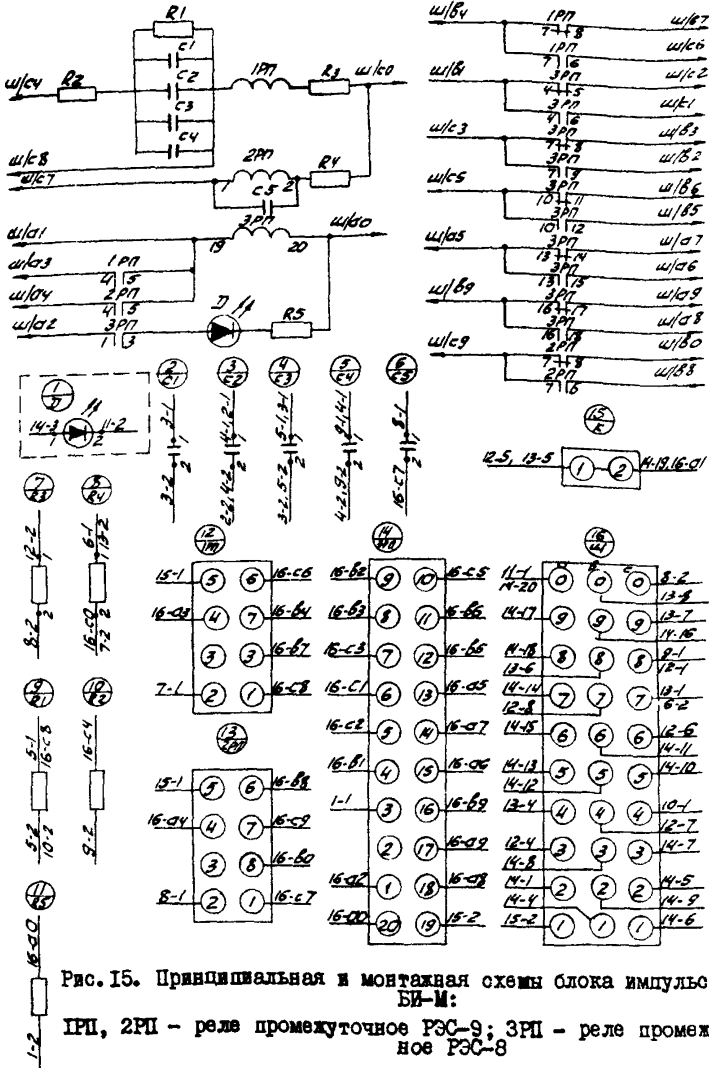 R1
C1
ш/с4
R2
C2
1РП
R3
ш/с0
C3
C4
ш/с8
ш/с7
2РП
R4
1
2
C5
3РП
ш/а1
19
20
ш/а0
ш/а3
1РП
4 5
ш/а4
2РП
4 5
ш/а2
3РП
1 3
Д
R5
ш/в4
1РП
7 8
ш/в7
1РП
7 6
ш/с6
ш/в1
3РП
4 5
ш/с2
3РП
4 6
ш/с1
ш/с3
3РП
7 8
ш/в3
3РП
7 9
ш/в2
ш/с5
3РП
10 11
ш/в6
3РП
10 12
ш/в5
ш/а5
3РП
13 14
ш/а7
3РП
13 15
ш/а6
ш/в9
3РП
16 17
ш/а9
3РП
16 18
ш/а8
ш/с9
2РП
7 8
ш/в0
2РП
7 6
ш/в8
1
Д
14-3
1
2
11-2
2
C1
3-1
1
2
3-2
3
C2
4-1, 2-1
1
2
2-2, 4-2
4
C3
5-1, 3-1
1
2
3-2, 5-2
5
C4
9-1, 4-1
1
2
4-2, 9-2
6
C5
8-1
1
2
16-с7
15
К
12-5, 13-5
1
2
14-19, 16-а1
7
R3
12-2
1
2
8-2
8
R4
6-1
13-2
1
2
16-с0
7-2
9
R1
5-1
16-с8
5-2
10-2
10
R2
16-с4
9-2
11
R5
16-а0
1-2
12
15-1 5 6 16-с6
16-а3 4 7 16-в4
3 3 16-в7
7-1 2 1 16-с8
13
2РП
15-1 5 6 16-в8
16-а4 4 7 16-с9
3 8 16-в0
8-1 2 1 16-с7
14
16-в2 9 10 16-с5
16-в3 8 11 16-в6
16-с3 7 12 16-в5
16-с1 6 13 16-а5
16-с2 5 14 16-а7
16-в1 4 15 16-а6
1-1 3 16 16-в9
2 17 16-а9
16-а2 1 18 16-а8
16-а0 20 19 15-2
16
Ш
а в с
11-1
14-20
0 0 0
8-2
13-8
14-17
9 9 9
13-7
14-16
14-18
13-6
8 8 8
9-1
12-1
14-14
12-8
7 7 7
13-1
6-2
14-15
6 6 6
12-6
14-11
14-13
14-12
5 5 5
14-10
13-4
4 4 4
10-1
12-7
12-4
14-8
3 3 3
14-7
14-1
14-4
2 2 2
14-5
14-9
15-2
1 1 1
14-6
Рис.15. Принципиальная и монтажная схемы блока импульс
БИ-М:
1РП, 2РП – реле промежуточное РЭС-9; 3РП – реле промеж
ное РЭС-8